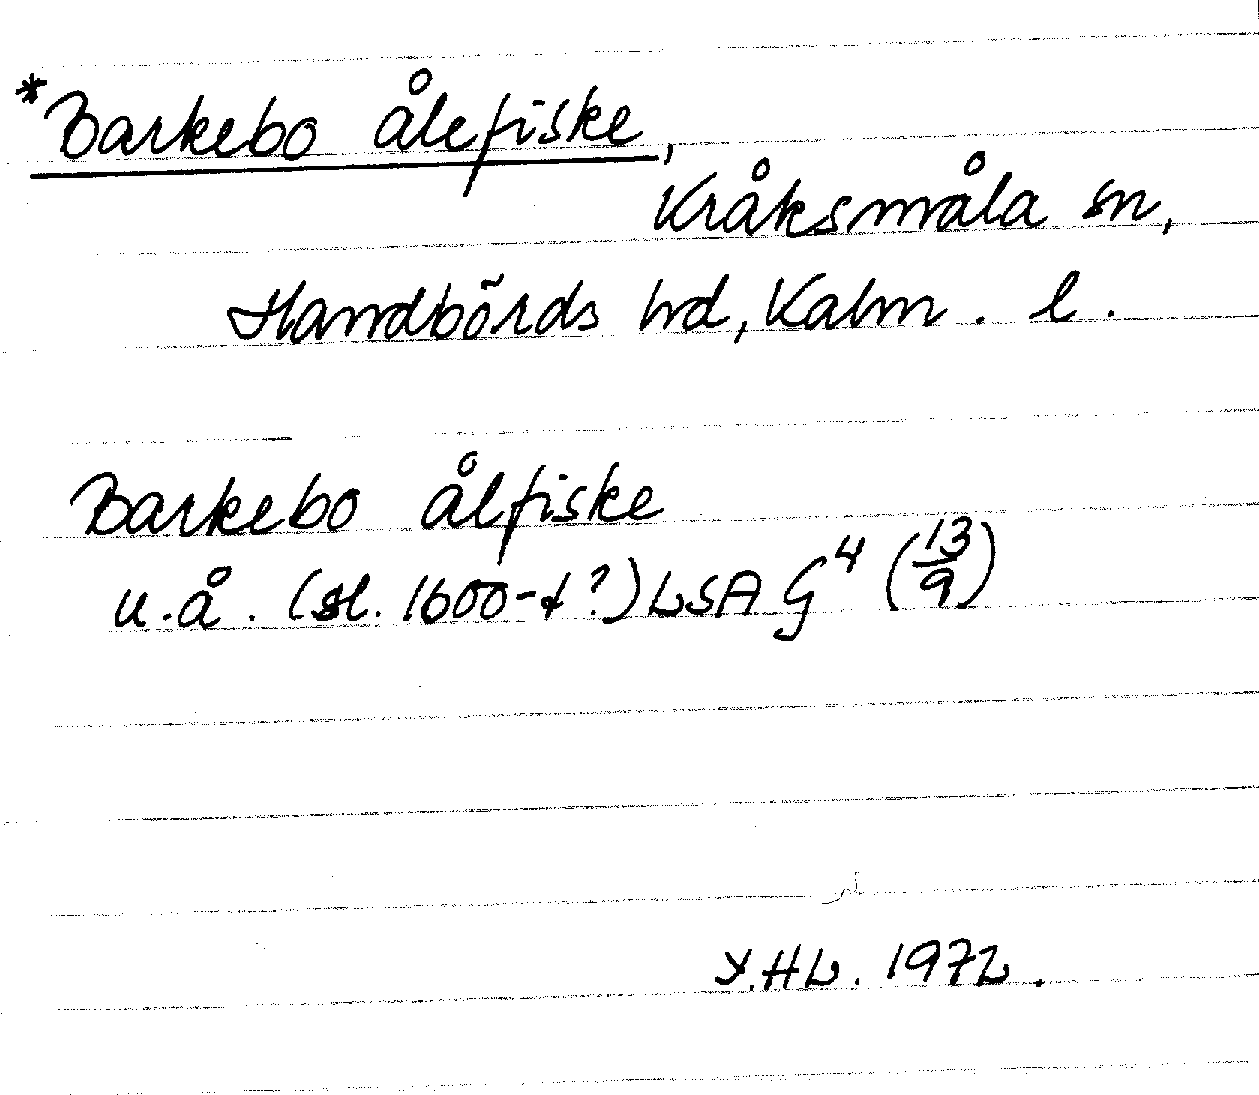 *Barkebo ålefiske,
Kråksmåla sn,
Handbörds hd, Kalm. l.
Barkebo ålfiske
u.å. (sl. 1600-t?) LSA G⁴ (13/9)
Y.HL. 1972.